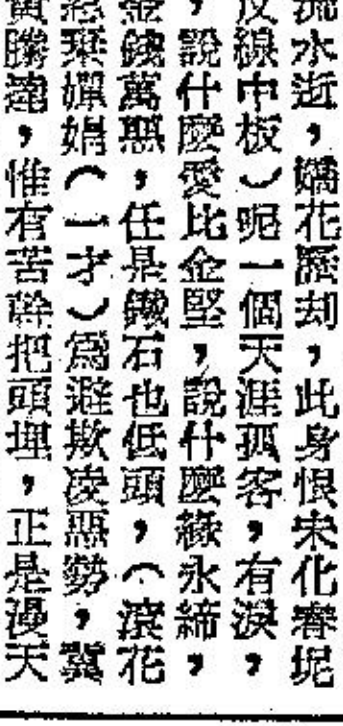 流水逝，嬌花歷刼，此身恨未化春坭
反線中板）呢一個天涯孤客，有淚，
，說什麼愛比金堅，說什麼緣永締，
金錢萬惡，任是鐵石也低頭，（滾花
忍棄嬋娟（一才）爲避欺凌惡勢，冀
黃騰達，惟有苦幹把頭埋，正是漫天